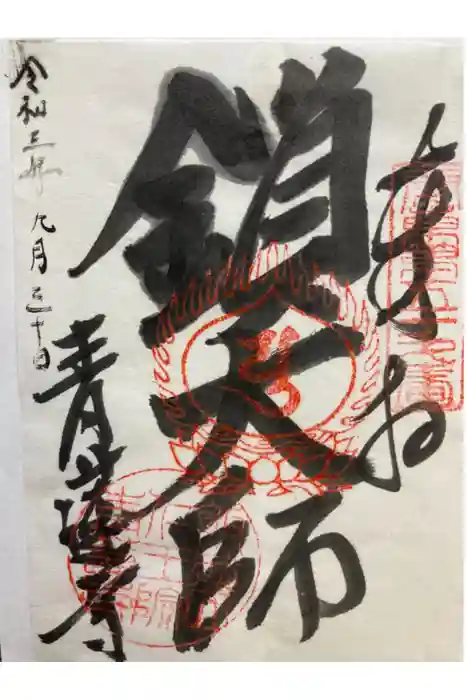 奉拝
鎖大師
青蓮寺
令和三年九月三十日